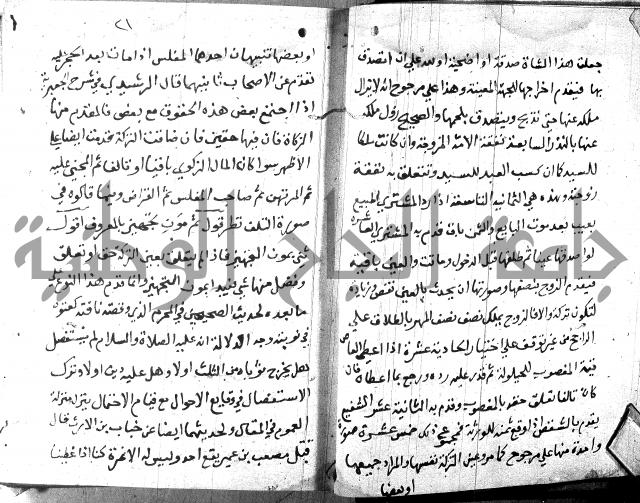 جعلت هذا الشاة صدقة او اضحية او لله علي ان اتصدق
بها فيقدم اخراجها للجهة المعينة وهذا علي مرجوح انه لا يزال
ملكه عنها حتى تذبح ويتصدق بلحمها والصحيح زوال ملكه
عنها بالنذر السابعة نفقة الامة المزوجة وان كانت ملكا
للسيد كان كسب العبد للسيد وتتعلق به نفقة
زوجته وهذه هي الثامنة التاسعة اذا رد المشتري المبيع
بعيب بعد موت البايع والثمن باق قدم به المشتري العاشرة
لو اصدقها عينا ثم طلقها قبل الدخول وماتت والعين باقية
فيقدم الزوج بنصفها وصورتها ان يحدث بالعين نقص او زيادة
لتكون تركة والا فالزوج يملك نصف المهر بالطلاق علي
الراجح من غير توقف على اختيار الحادية عشرة اذا اعطى الغاصب
قيمة المغصوب للحيلولة ثم قدر عليه رده ورجع بما اعطاه فان
كان تالفا تعلق حقه بالمغصوب وقدم به الثانية عشر الشفيع
يقدم بالشقص اذا دفع ثمنه للورثة فمجموع ذلك خمس عشرة صورة
واحدة منها علي مرجوح كما مر وعين التركة نفسها والمراد جميعها
او بعضها
٢١
او بعضها تنبيهان احدهما المفلس اذا مات بعد الحجر عليه
تقدم عن الاصحاب ثانيهما قال الرشيدي في شرح الجعبرية
اذا اجتمع بعض هذه الحقوق مع بعض فالمقدم منها
الزكاة فان فيها حقين فان ضاقت التركة قدمت ايضا على
الاظهر سوا كان المال الزكوي باقيا او تالفا ثم المجني عليه
ثم المرتهن ثم صاحب المفلس ثم القراض وفيما قالوه في
صورة التلف نظر قول ثم مون تجهيز بالمعروف اقول
ثنى بمون التجهيز فاذا لم يتعلق بعين التركة حق او تعلق
وفضل منها شي فيبدا بمون التجهيز وانما قدم هذا النوع علي
ما بعده لحديث الصحيحين في المحرم الذي وقصته ناقته كفنوه
في ثوبيه وجه الدلالة انه عليه الصلاة والسلام لم يستفصل
هل يخرج ثوباه من الثلث اولا وهل عليه دين اولا وترك
الاستفصال في وقايع الاحوال مع قيام الاحتمال ينزل منزلة
العموم في المقال ولحديثهما ايضا عن خباب بن الارت قال
قتل مصعب بن عمير يوم احد وليس له الا نمرة كنا اذا غطينا
جامعة النجاح الوطنية